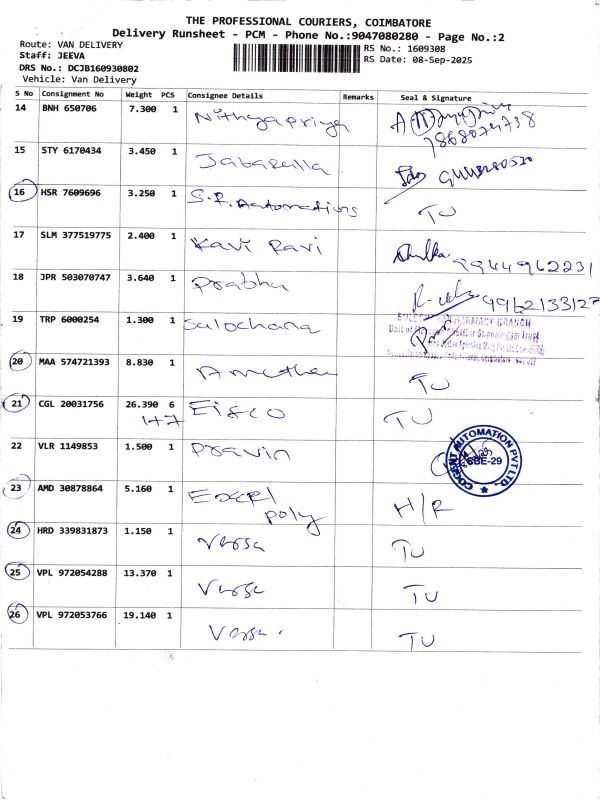 THE PROFESSIONAL COURIERS, COIMBATORE
Delivery Runsheet - PCM - Phone No.:9047080280 - Page No.:2
Route: VAN DELIVERY
Staff: JEEVA
DRS No.: DCJB160930802
Vehicle: Van Delivery
RS No.: 1609308
RS Date: 08-Sep-2025
S No Consignment No Weight PCS Consignee Details Remarks Seal & Signature
14 BNH 650706 7.300 1 Nithyapriya 7868074738
15 STY 6170434 3.450 1
16 HSR 7609696 3.250 1 S.R. Automations TU
17 SLM 377519775 2.400 1 Kavi Ravi 9944962231
18 JPR 503070747 3.640 1 Prabhu 9962133127
19 TRP 6000254 1.300 1 Sulochana
20 MAA 574721393 8.830 1 TU
21 CGL 20031756 26.390 6 TU
22 VLR 1149853 1.500 1 Pravin
COGENT AUTOMATION PVT LTD.
CBE-29
23 AMD 30878864 5.160 1 Excel poly H/R
24 HRD 339831873 1.150 1 Versa TU
25 VPL 972054288 13.370 1 Versa TU
26 VPL 972053766 19.140 1 Versa. TU